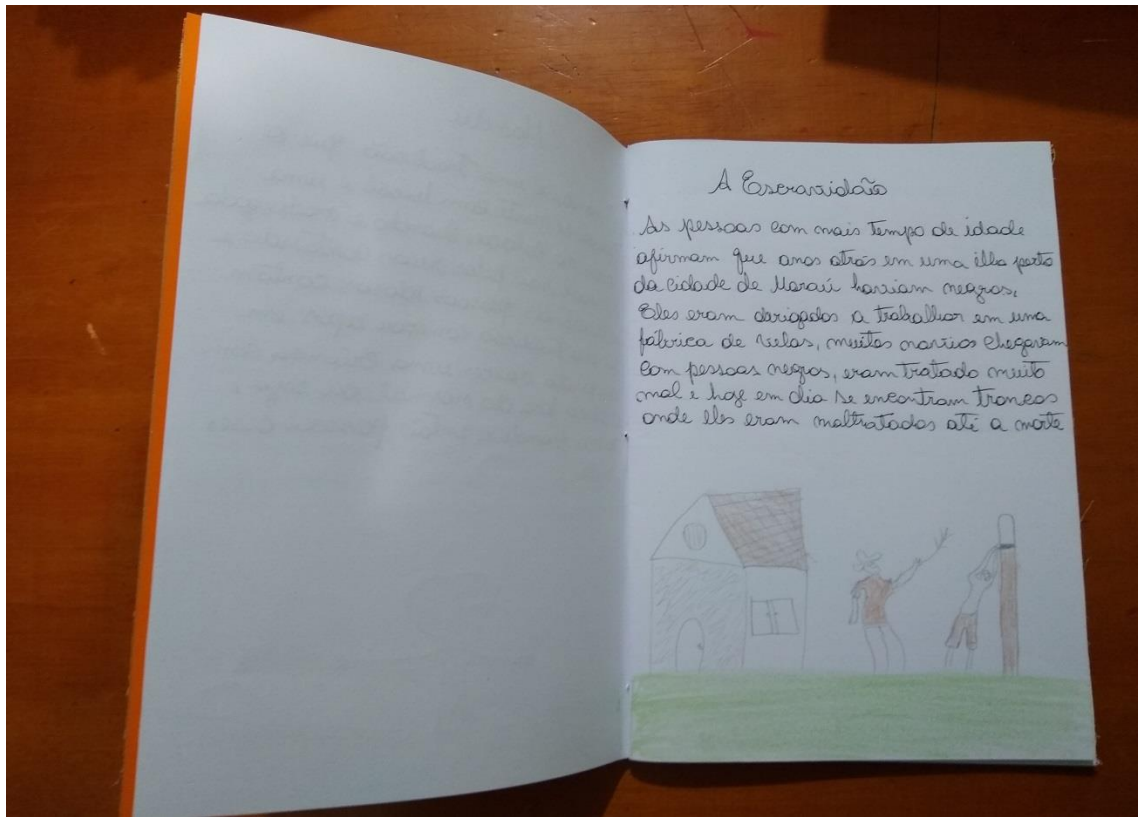 A Escravidão
As pessoas com mais tempo de idade
afirmam que anos atrás em uma ilha perto
da cidade de Maraú haviam negros,
Eles eram obrigados a trabalhar em uma
fábrica de velas, muitos navios chegavam
com pessoas negras, eram tratado muito
mal e hoje em dia se encontram troncos
onde eles eram maltratados até a morte